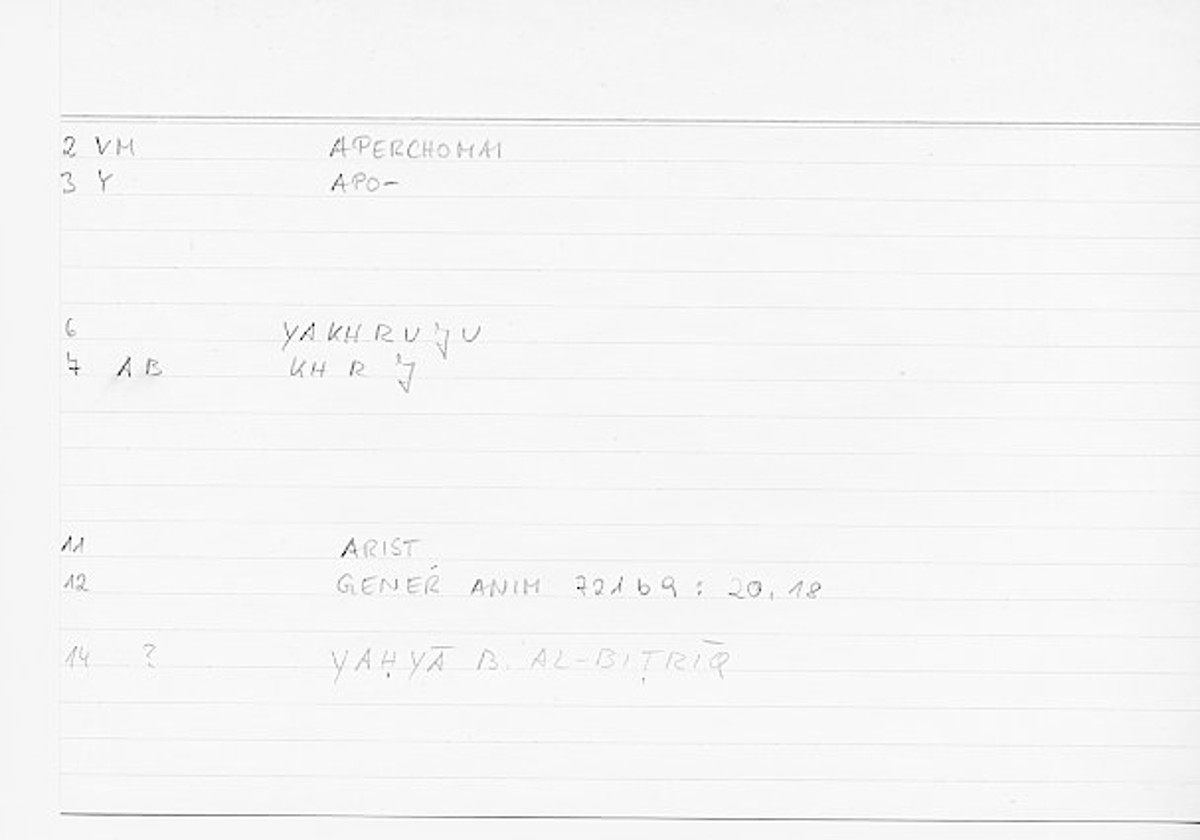 2 VM APERCHOMAI
3 Y APO-
6 YAKHRUǦU
7 AB KH R Ǧ
11 ARIST
12 GENER ANIM 721b9: 20,18
14 ? YAḤYĀ B. AL-BIṬRĪQ